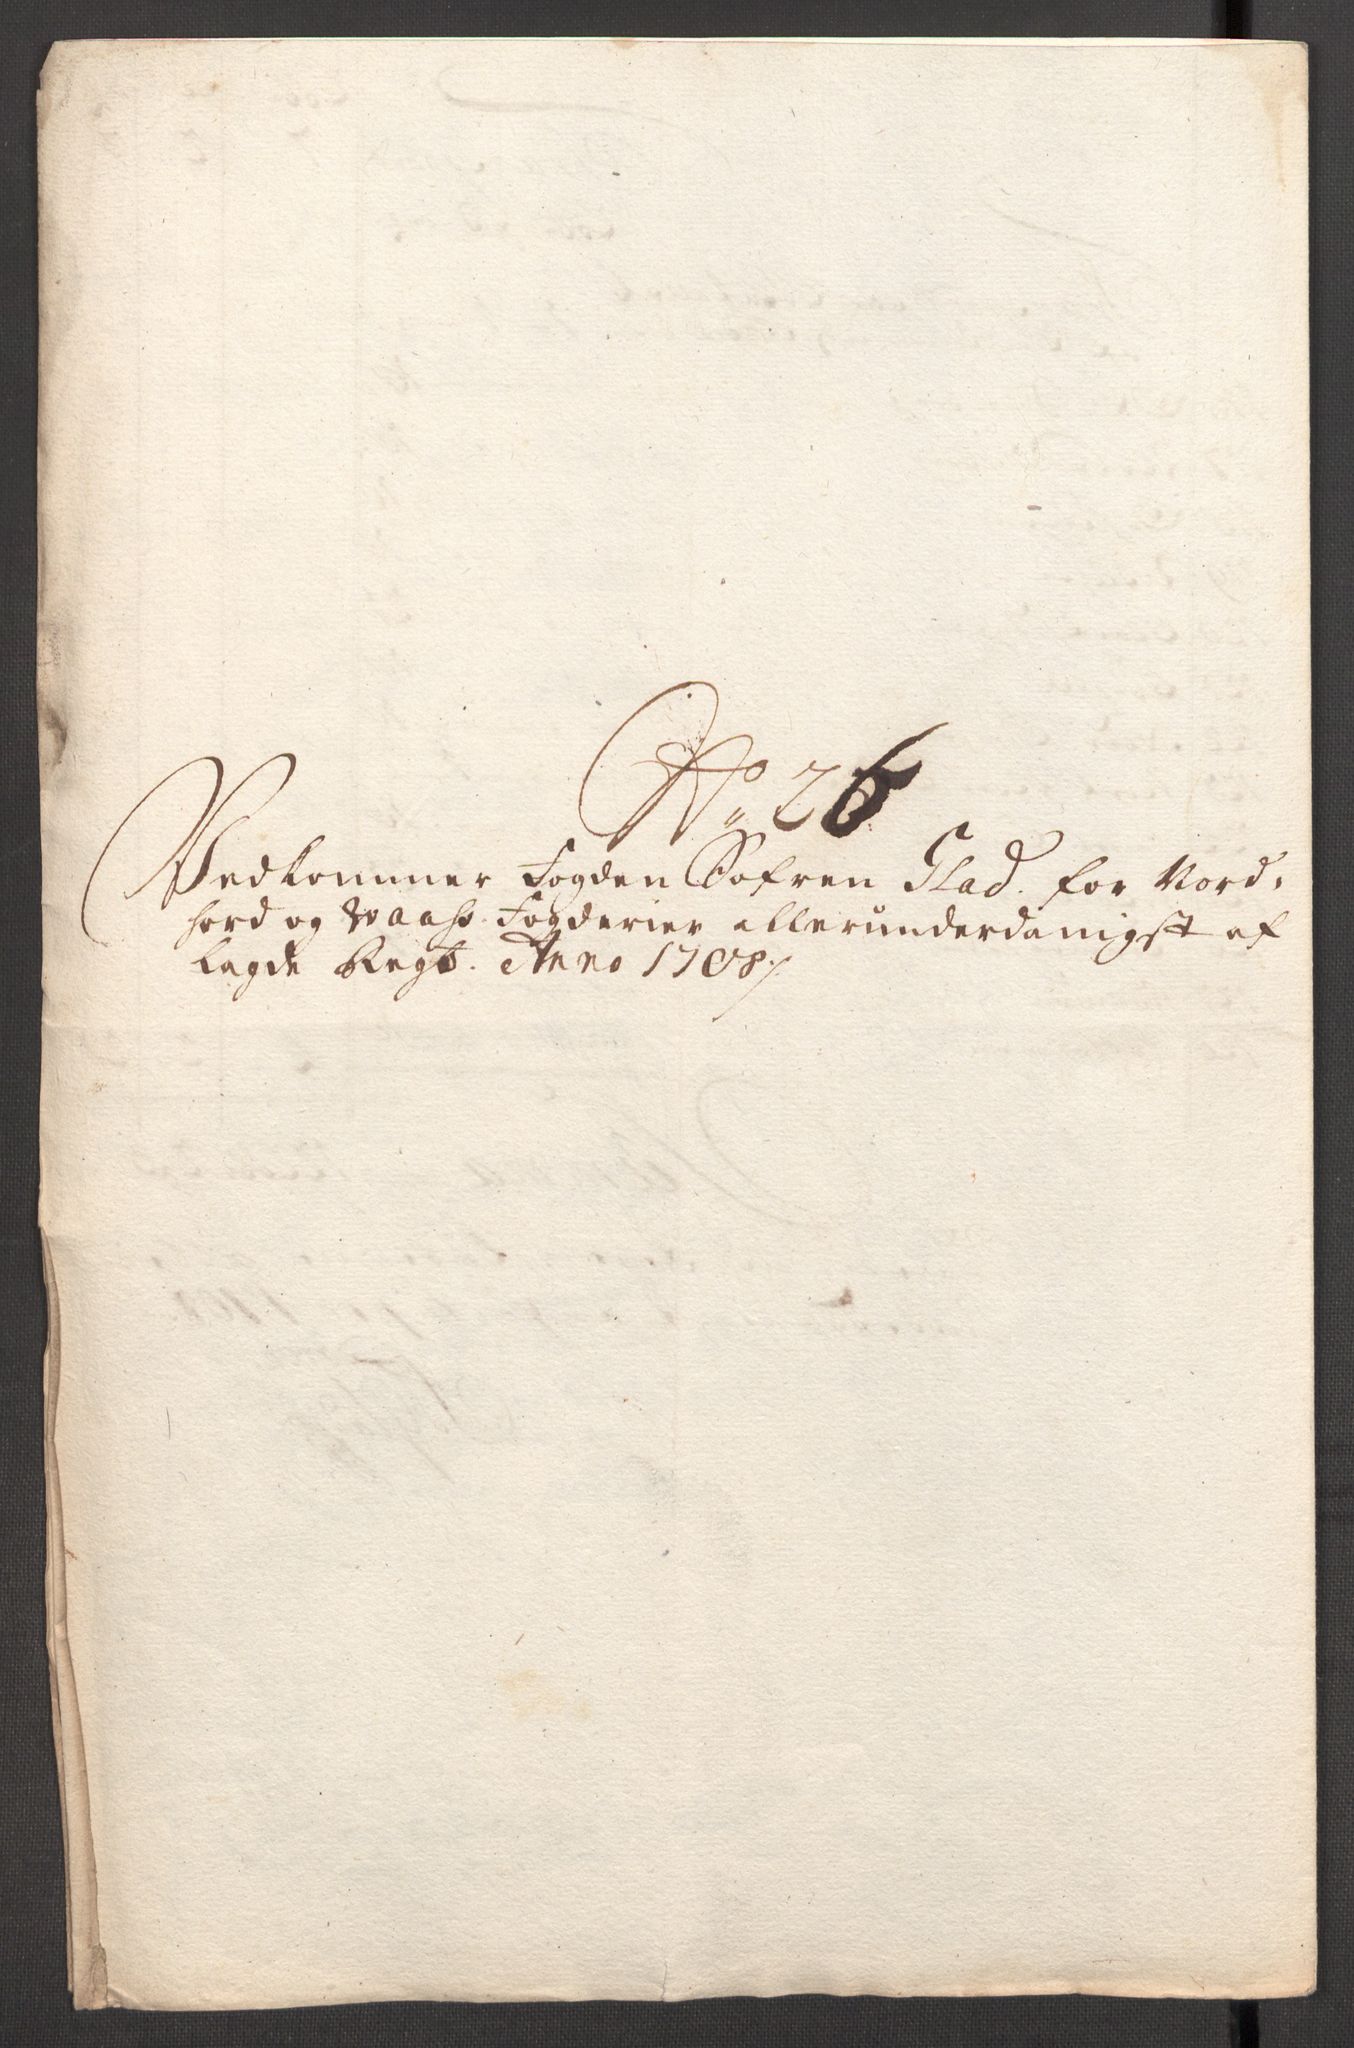 No 26
Vedkommer Fogden Søfren Glad. for Nord,
hord og Waass. Fogderier allerunderdanigst af
lagde Regb. Anno 1708